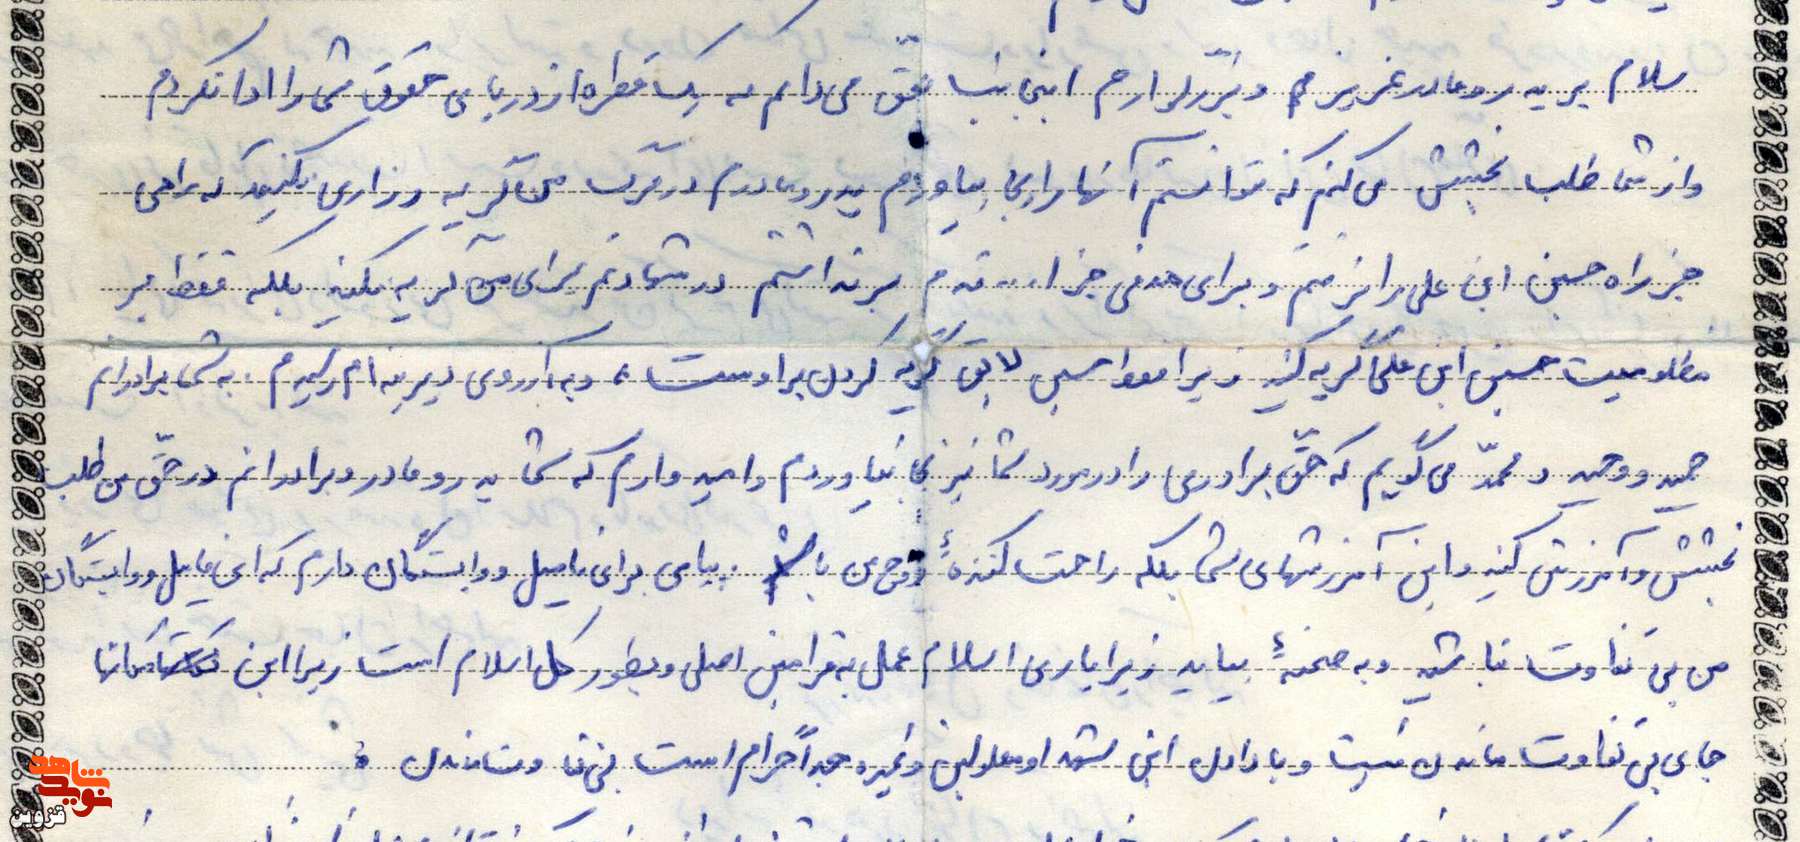 سلام بر پدر و مادر عزیزم و بزرگوارم اینجانب می دانم که یک قطره از دریای حقوق شما را ادا نکردم
و از شما طلب بخشش می کنم که نتوانستم آنها را بجا بیاورم پدر و مادرم در مرگ من گریه و زاری نکنید که راهی
جز راه حسین ابن علی را نرفتم و برای هدفی جز ا... قدم برنداشتم در شهادتم برای من گریه نکنید بلکه فقط بر
مظلومیت حسین ابن علی گریه کنید زیرا فقط حسین لایق گریه کردن بر اوست، و به آرزوی دیرینه ام رسیدم. به شما برادرانم
حمید و وحید و محمد می گویم که حق برادری را در مورد شما نیز بجا نیاوردم و امیدوارم که شما پدر و مادر و برادرانم در حق من طلب
بخشش و آمرزش کنید و این آمرزشهای شما بلکه راحت کنندهٔ روح من باشد. پیامی برای فامیل و وابستگان دارم که ای فامیل و وابستگان
من بی تفاوت نباشید و به صحنهٔ بیاید زیرا یاری اسلام عمل به فرامین اصلی و بطور کل اسلام است زیرا این
جای بی تفاوت ماندن نیست و با دادن این شهدا و معلولین و غیره جداً حرام است بی تفاوت ماندن
شاهد
نوید
قزوین